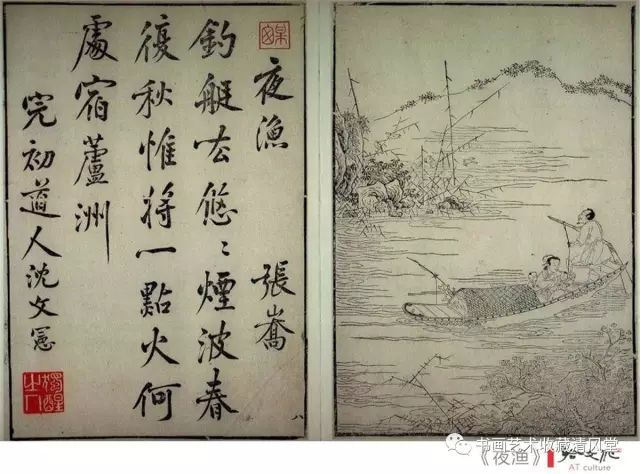 夜漁 張喬
釣艇厺悠〻煙波春
復秋惟將一點火何
處宿蘆洲
完初道人沈文憲
八
书画艺术收藏清风堂
《夜渔》
AT culture